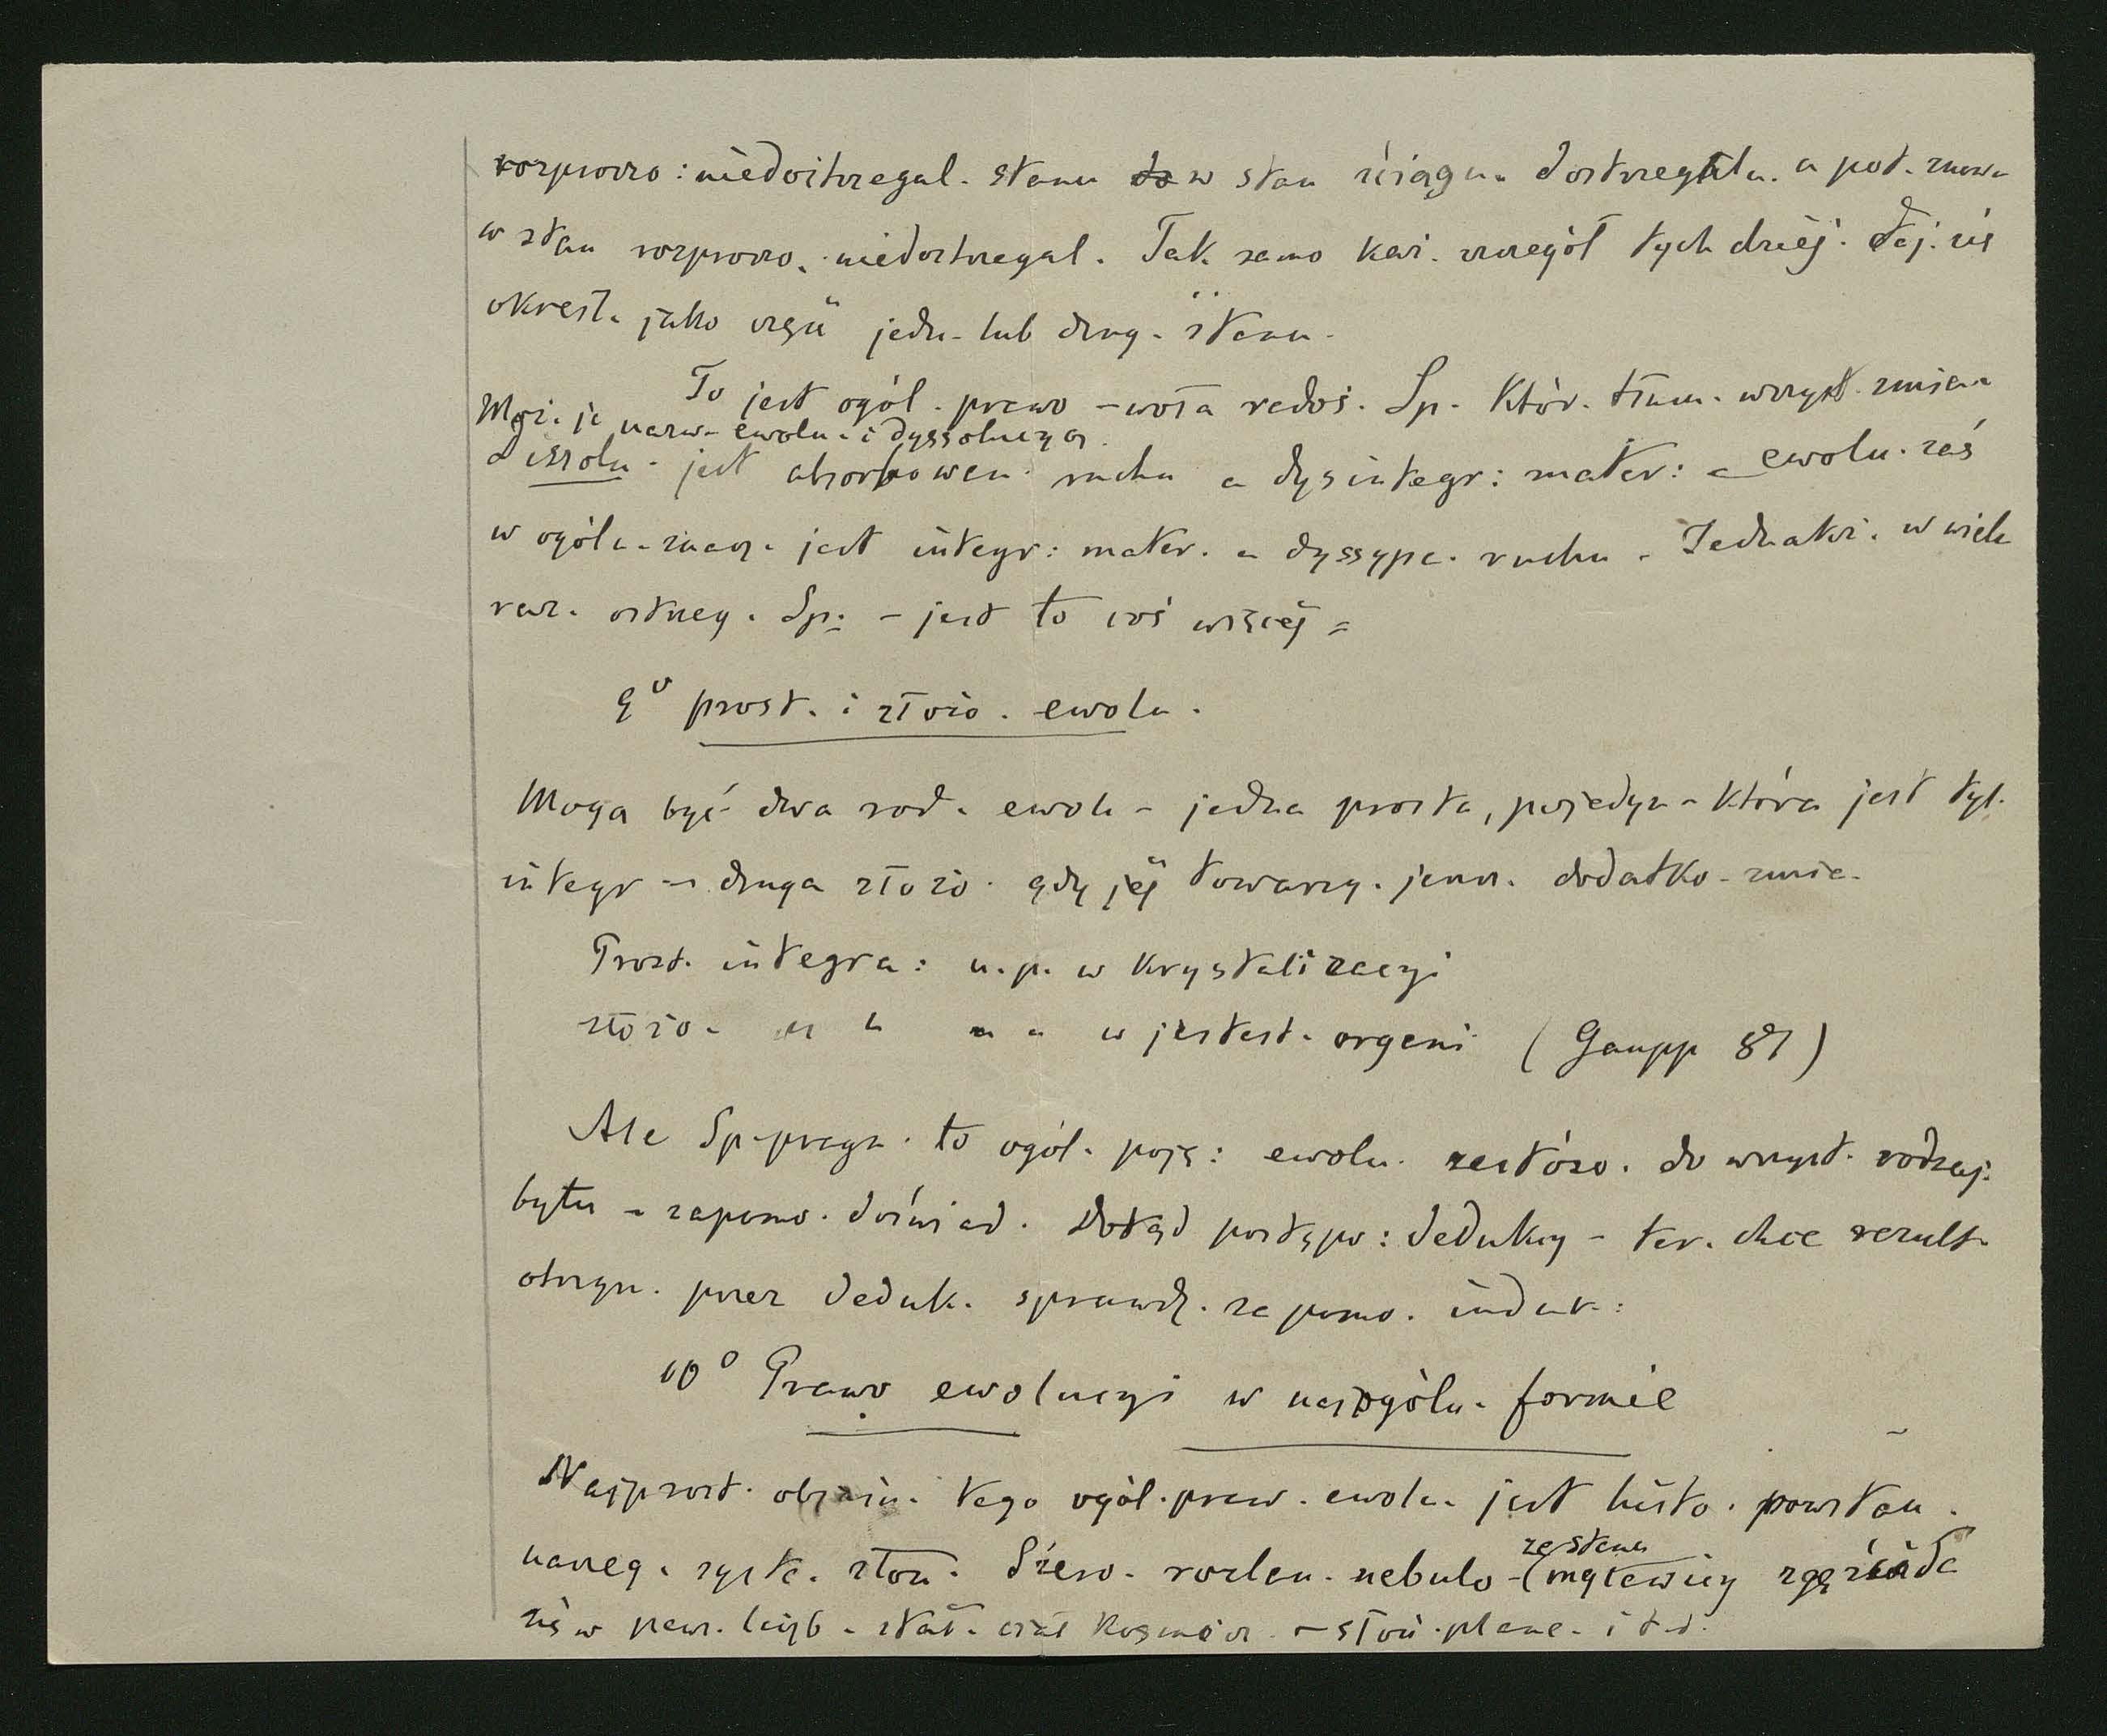 rozproszo: niedostrzegal. stanu do w stan ściągn. dostrzegaln. a pot. znow.
w stan rozproszo. niedostrzegal. Tak samo każ. szczegół tych dziej. daj. się
określ. jako część jedn. lub drug. stanu.
To jest ogól. prawo - woła rados. Sp. któr. tłum. wszyst. zmian.
Moż. je nazw. ewolu. i dyssolucyą.
dissolu. jest absorbowan. ruchu a dysintegr: mater: - ewolu. zaś
w ogóln. znacz. jest integr: mater. a dyssypa. ruchu. Jednakż. w wielu
raz. ostrzeg. Sp: - jest to coś więcéj =
9° prost. i złożo. ewolu.
Mogą być dwa rodz. ewolu - jedna prosta, pojedyn - która jest tyl.
integr - druga złożo. gdy jéj towarzy. jeszcz. dodatko. zmia.
Prost. integra: n.p. w krystalizacyi
złożo. " " " " w jestest. organi (Gaupp 87)
Ale Sp. pragn. to ogól. poję: ewolu. zastóso. do wszyst. rodzaj.
bytu - zapomo. doświad. Dotąd postępo: dedukcy - ter. chce rezult.
otrzym. przez deduk. sprawdz. za pomo. induk:
10° Prawo ewolucyi w najogóln. formie
Najprost. objaśn. tego ogól. praw. ewolu. jest histo. powstan.
naszeg. syste. słon. Szero. rozlan. nebulo -
ze stanu
(mgławicy zgęszcza
się w pew. liczb. stał. ciał kosmicz. - słoń. plane. i t.d.